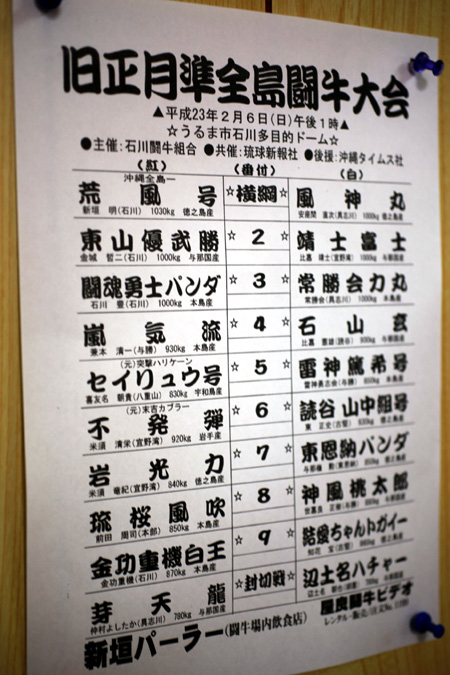 旧正月準全島闘牛大会
▲平成23年2月6日(日)午後1時▲
☆うるま市石川多目的ドーム☆
●主催:石川闘牛組合 ●共催:琉球新報社 ●後援:沖縄タイムス社
(紅) (番付) (白)
沖縄全島一
荒風号 ☆横綱☆ 風神丸
新垣 明(石川) 1030kg 徳之島産 安慶間 喜次(具志川) 1000kg 徳之島産
東山優武勝 ☆ 2 ☆ 靖士富士
金城 哲二(石川) 1000kg 与那国産 比嘉 靖士(宜野湾) 1000kg 与那国産
闘魂勇士パンダ ☆ 3 ☆ 常勝会力丸
石川 豊(石川) 1000kg 本島産 常勝会(具志川) 1000kg 本島産
嵐気流 ☆ 4 ☆ 石山玄
兼本 清一(与勝) 930kg 本島産 比嘉 憲雄(読谷) 900kg 与那国産
(元)突撃ハリケーン
セイリュウ号 ☆ 5 ☆ 雷神篤希号
喜友名 朝貴(八重山) 830kg 宇和島産 雷神勇志会(与勝) 850kg 本島産
(元)末吉カブラー
不発弾 ☆ 6 ☆ 読谷山中組号
米須 清栄(宜野湾) 920kg 岩手産 東 正史(古堅)
岩光力 ☆ 7 ☆ 東恩納パンダ
米須 竜紀(宜野湾) 840kg 徳之島産
琉桜風吹 ☆ 8 ☆ 神風桃太郎
前田 周司(本部) 850kg 本島産
金功重機白王 ☆ 9 ☆ 愛ちゃんトガイー
金功重機(石川) 870kg 本島産
芽天龍 ☆封切戦☆ 辺土名ハチャー
仲村よしたか(具志川) 780kg 与那国産
新垣パーラー(闘牛場内飲食店) 屋良闘牛ビデオ
レンタル・販売